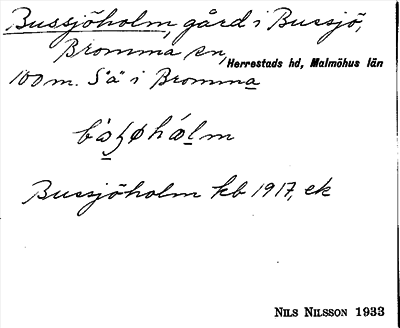 Bussjöholm, gård i Bussjö,
Bromma sn,
Herrestads hd, Malmöhus län
100 m. S "a" i Bromma
Bussjöholm kb 1917, ek
NILS NILSSON 1933